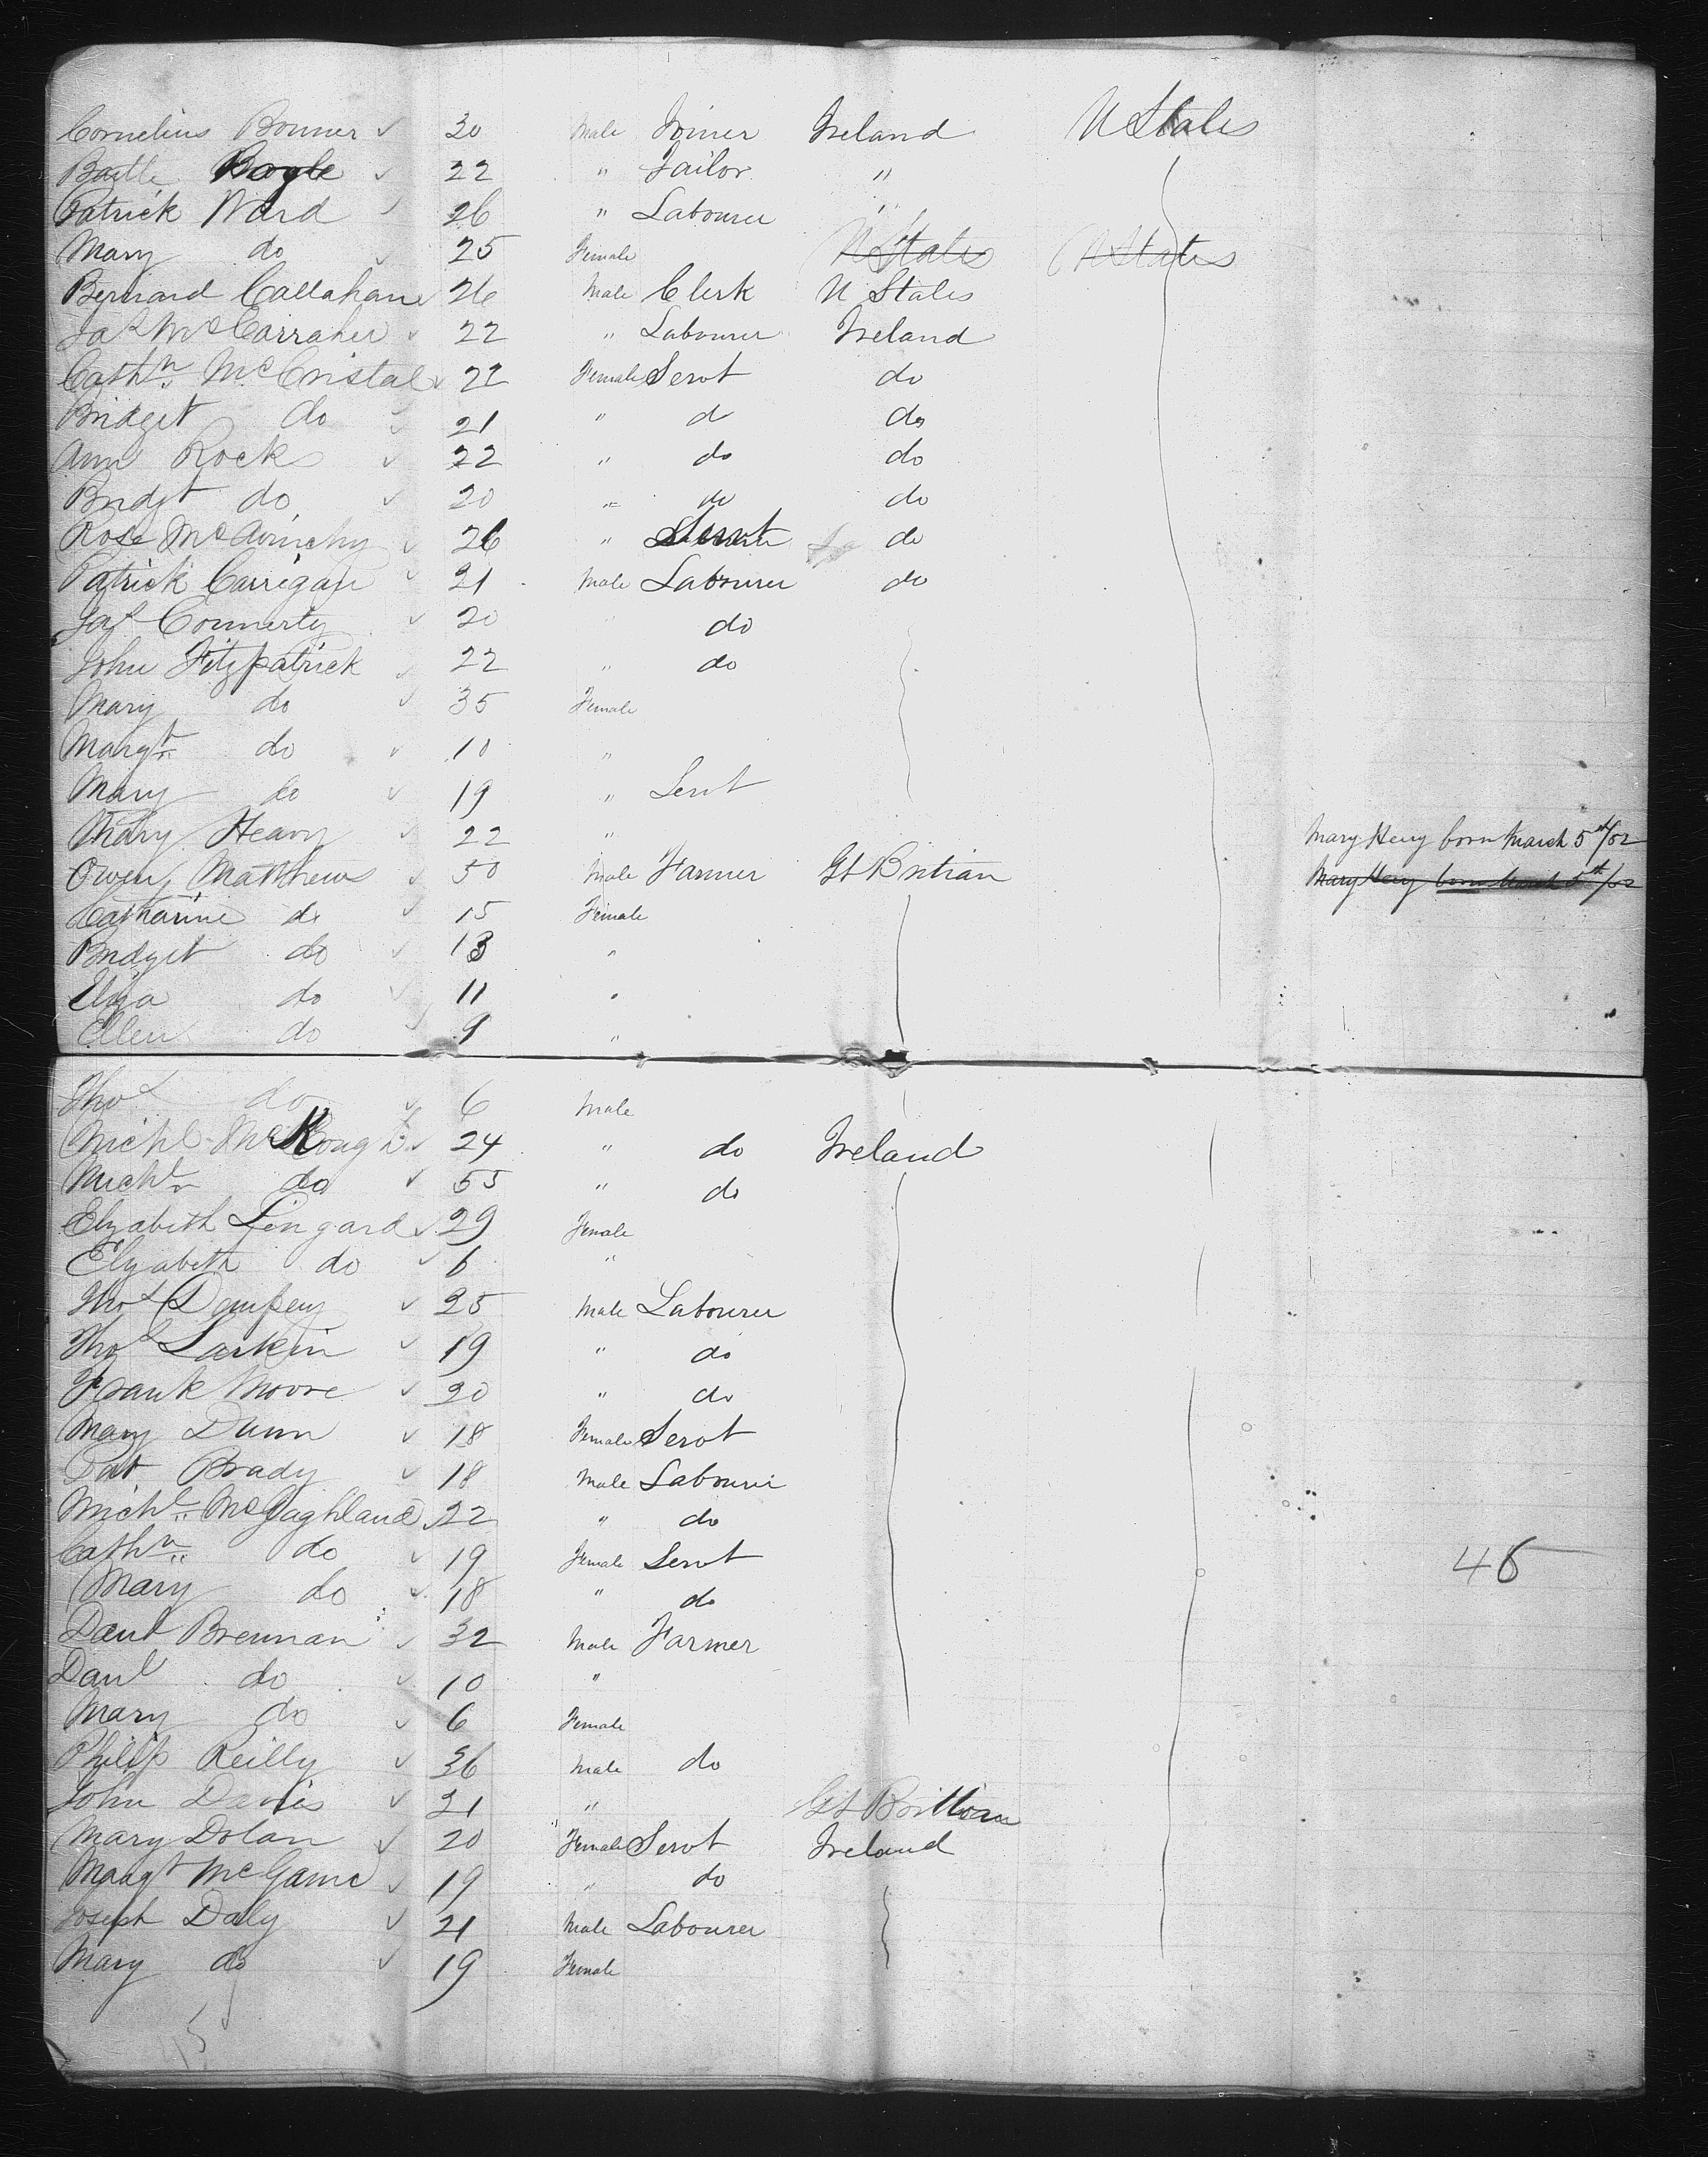 Cornelius Bonner 30 Male Joiner Ireland U States
Bartle Boyle 22 " Tailor "
Patrick Ward 26 " Labourer "
Mary do 25 Female U States U States
Bernard Callahan 26 Male Clerk U States
Jas McCarraher 22 " Labourer Ireland
Cathn McCristal 22 Female Servt do
Bridget do 21 " d do
Ann Rock 22 " do do
Bridgt do 20 " do do
Rose McAvinchy 26 " Servt do
Patrick Carrigan 21 Male Labourer do
Jas Connerty 20 " do
John Fitzpatrick 22 " do
Mary do 35 Female
Margt do 10 "
Mary do 19 " Servt
Mary Heavy 22 " Mary Heny born March 5th/52
Owen Matthews 50 Male Farmer Gt Britian Mary Heny born March 5th/52
Catharine do 15 Female
Bridget do 13 "
Eliza do 11 "
Ellen do 9 "
Thos do 6 Male
Michl McKough 24 " do Ireland
Michl do 55 " do
Elizabeth Lingard 29 Female
Elizabeth do 6 "
Thos Dempsey 25 Male Labourer
Thos Larkin 19 " do
Frank Moore 20 " do
Mary Dunn 18 Female Servt
Pat Brady 18 Male Labourer
Michl McGaghland 22 " do
Cathn do 19 Female Servt 45
Mary do 18 " do
Danl Brennan 32 Male Farmer
Danl do 10 "
Mary do 6 Female
Philip Reilly 36 Male do
John Davis 21 " Gt Brittian
Mary Dolan 20 Female Servt Ireland
Margt McGame 19 " do
Joseph Daly 21 Male Labourer
Mary do 19 Female
45